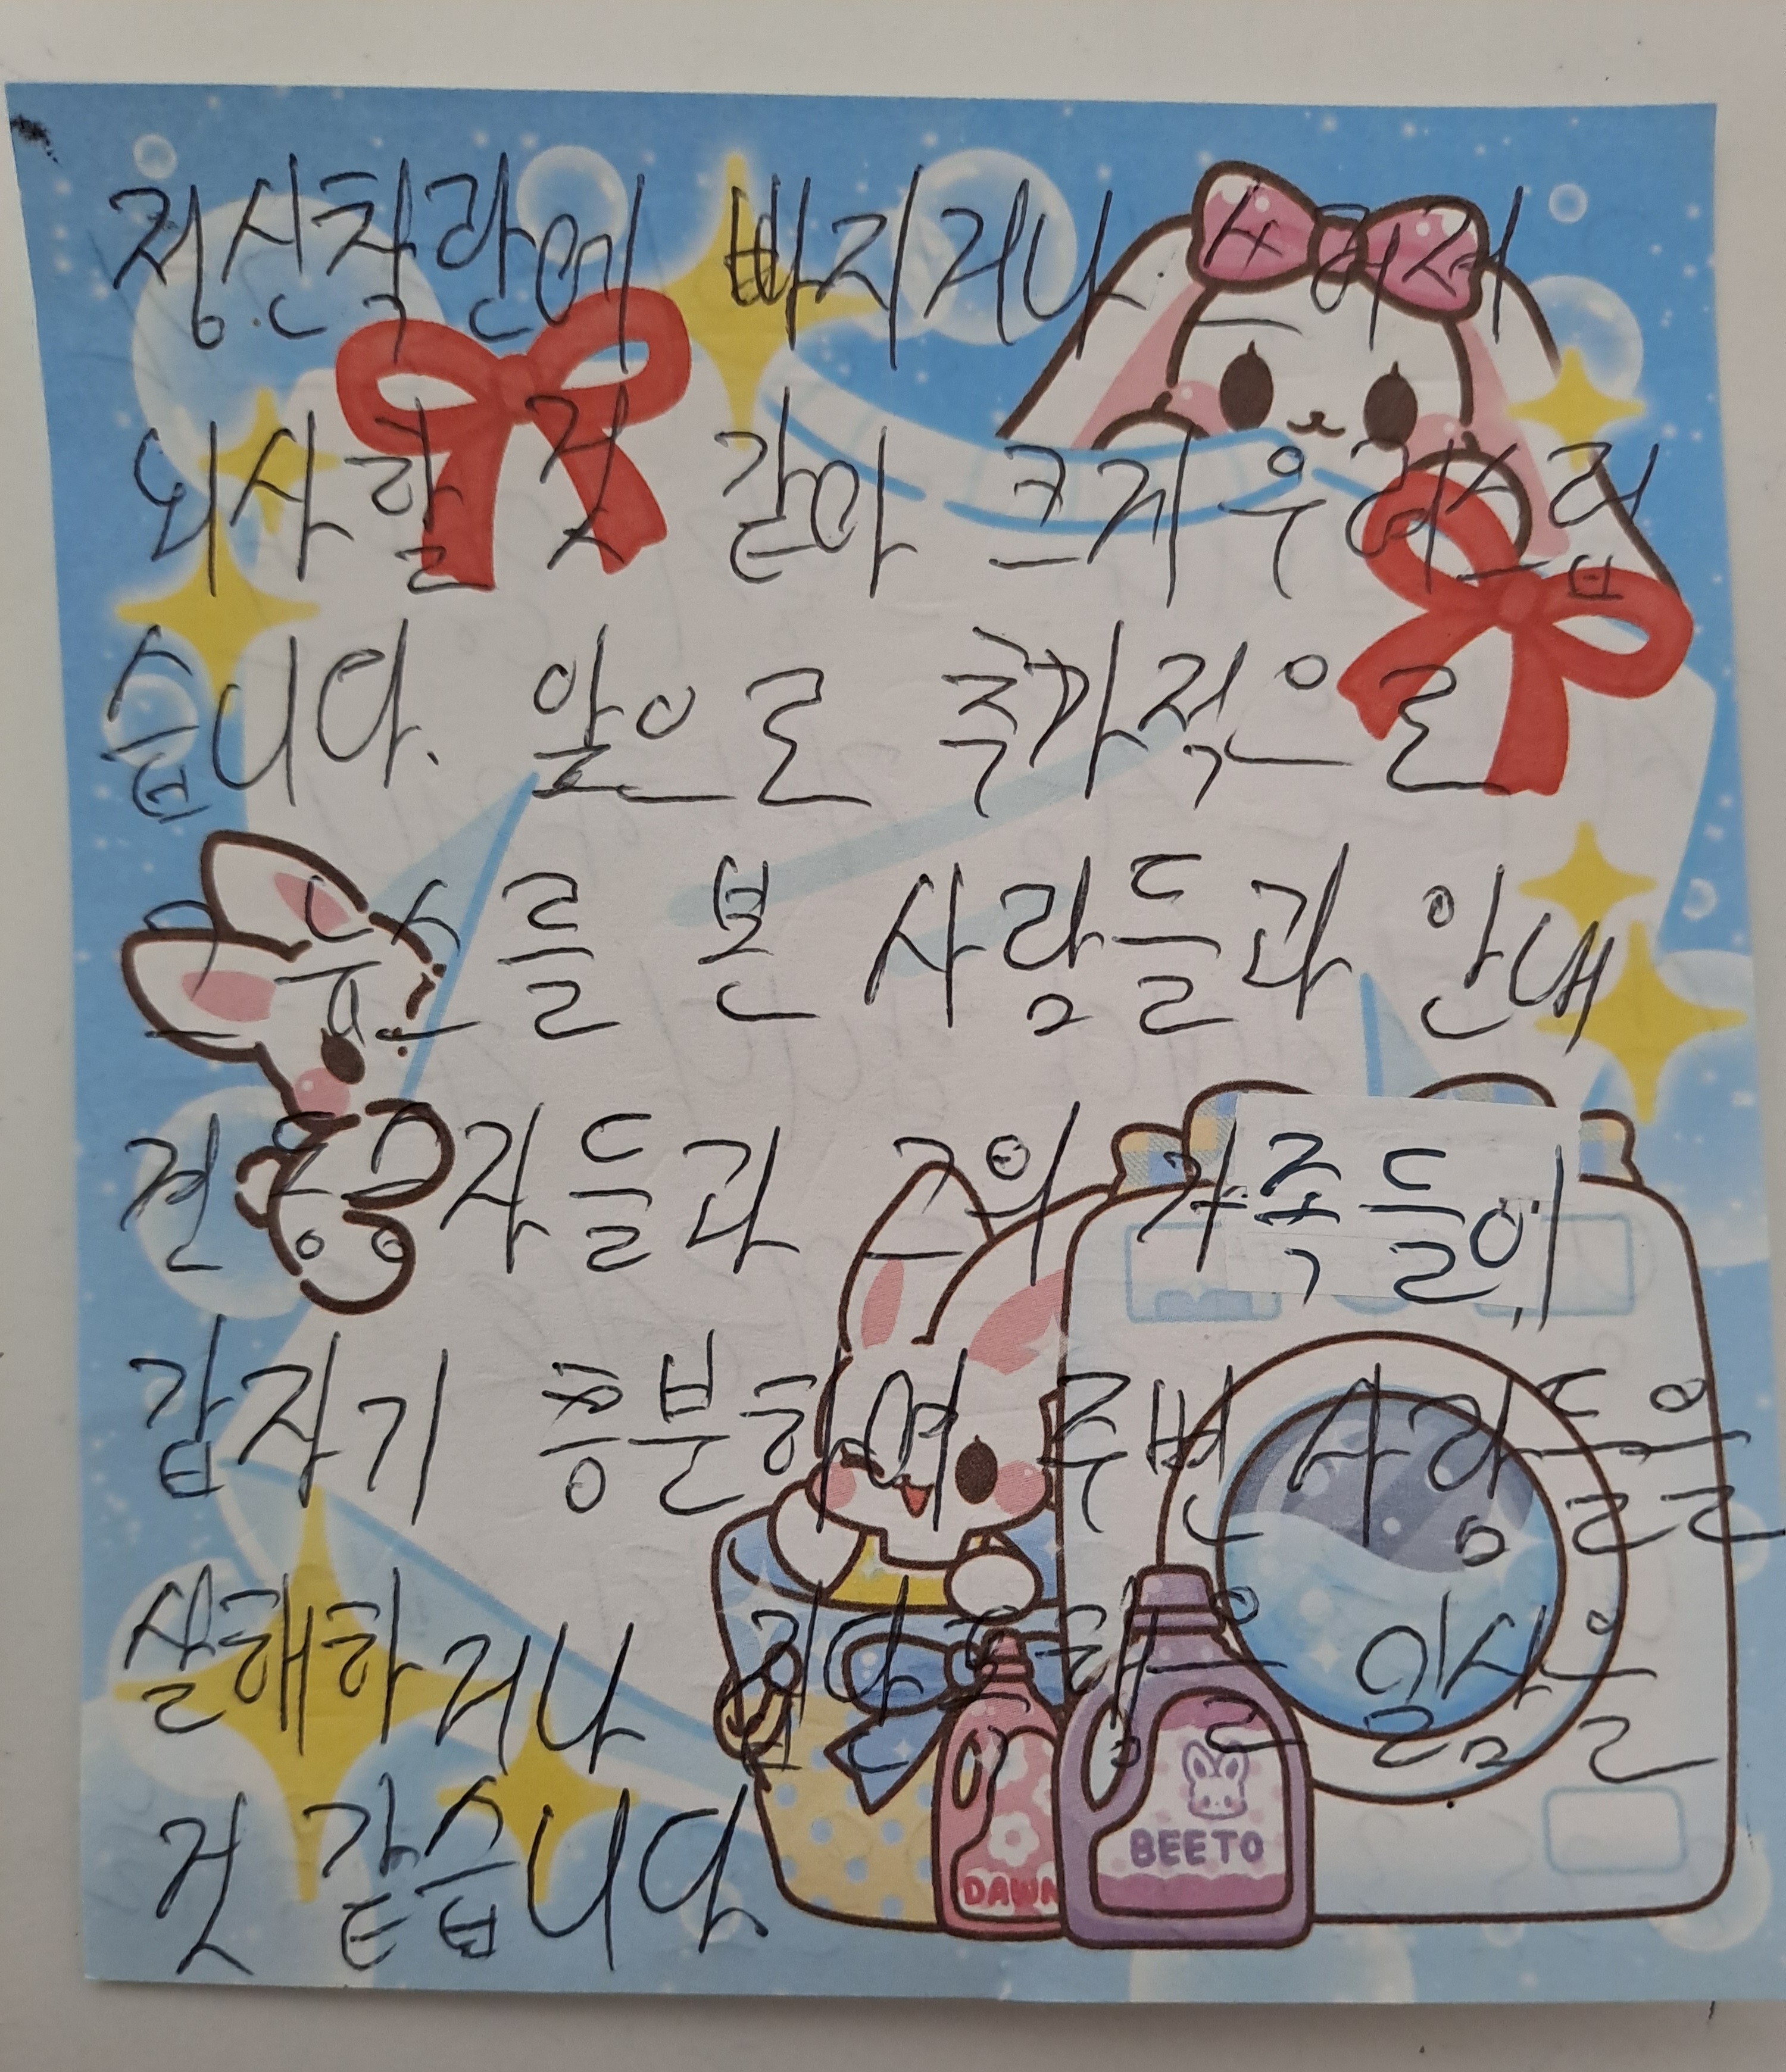 정신착란에 빠지거나 쓰러져
뇌사할 것 같아 크게 우려스럽
습니다. 앞으로 추가적으로
뉴스를 본 사람들과 안내
견 사용자들과 그의 가족들이
갑자기 흥분하여 주변 사람들을
살해하거나 집단폭행을 일삼을
것 같습니다
DAWN
BEETO